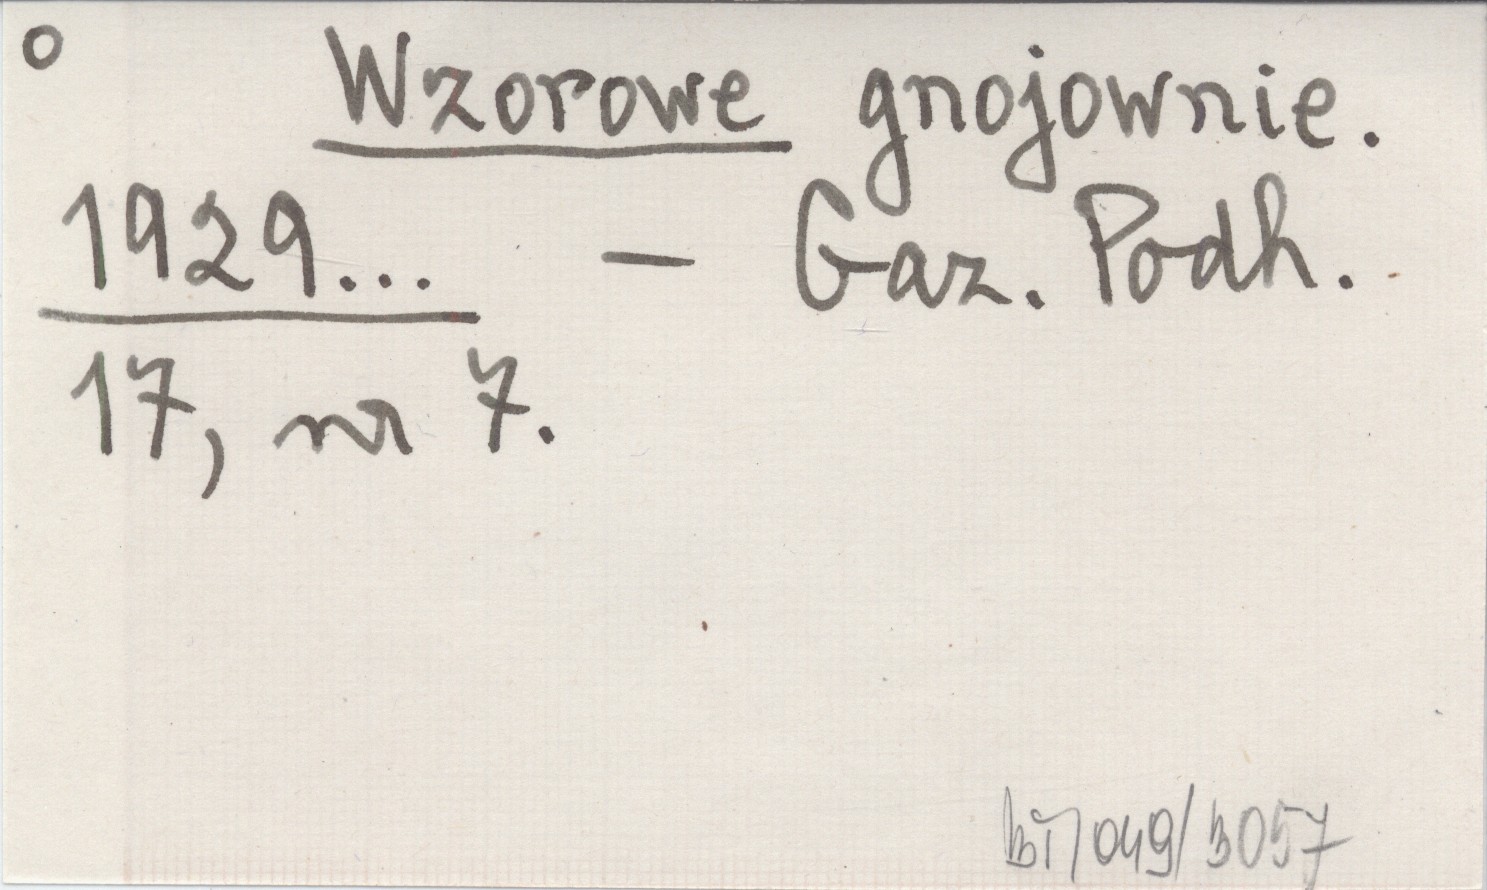 o Wzorowe gnojownie.
1929... — Gaz. Podh.
17, nr 7.
049/3057